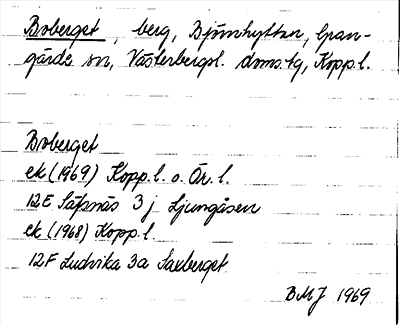 Boberget, berg, Björnhyttan, Gran-
gärde sn, Västerbergsl. doms.tg, Kopp.l.
Boberget
ek (1969) Kopp.l. o. Ör.l.
12E Säfsnäs 3j Ljungåsen
ek (1968) Kopp.l.
12F Ludvika 3a Saxberget
BMJ 1969